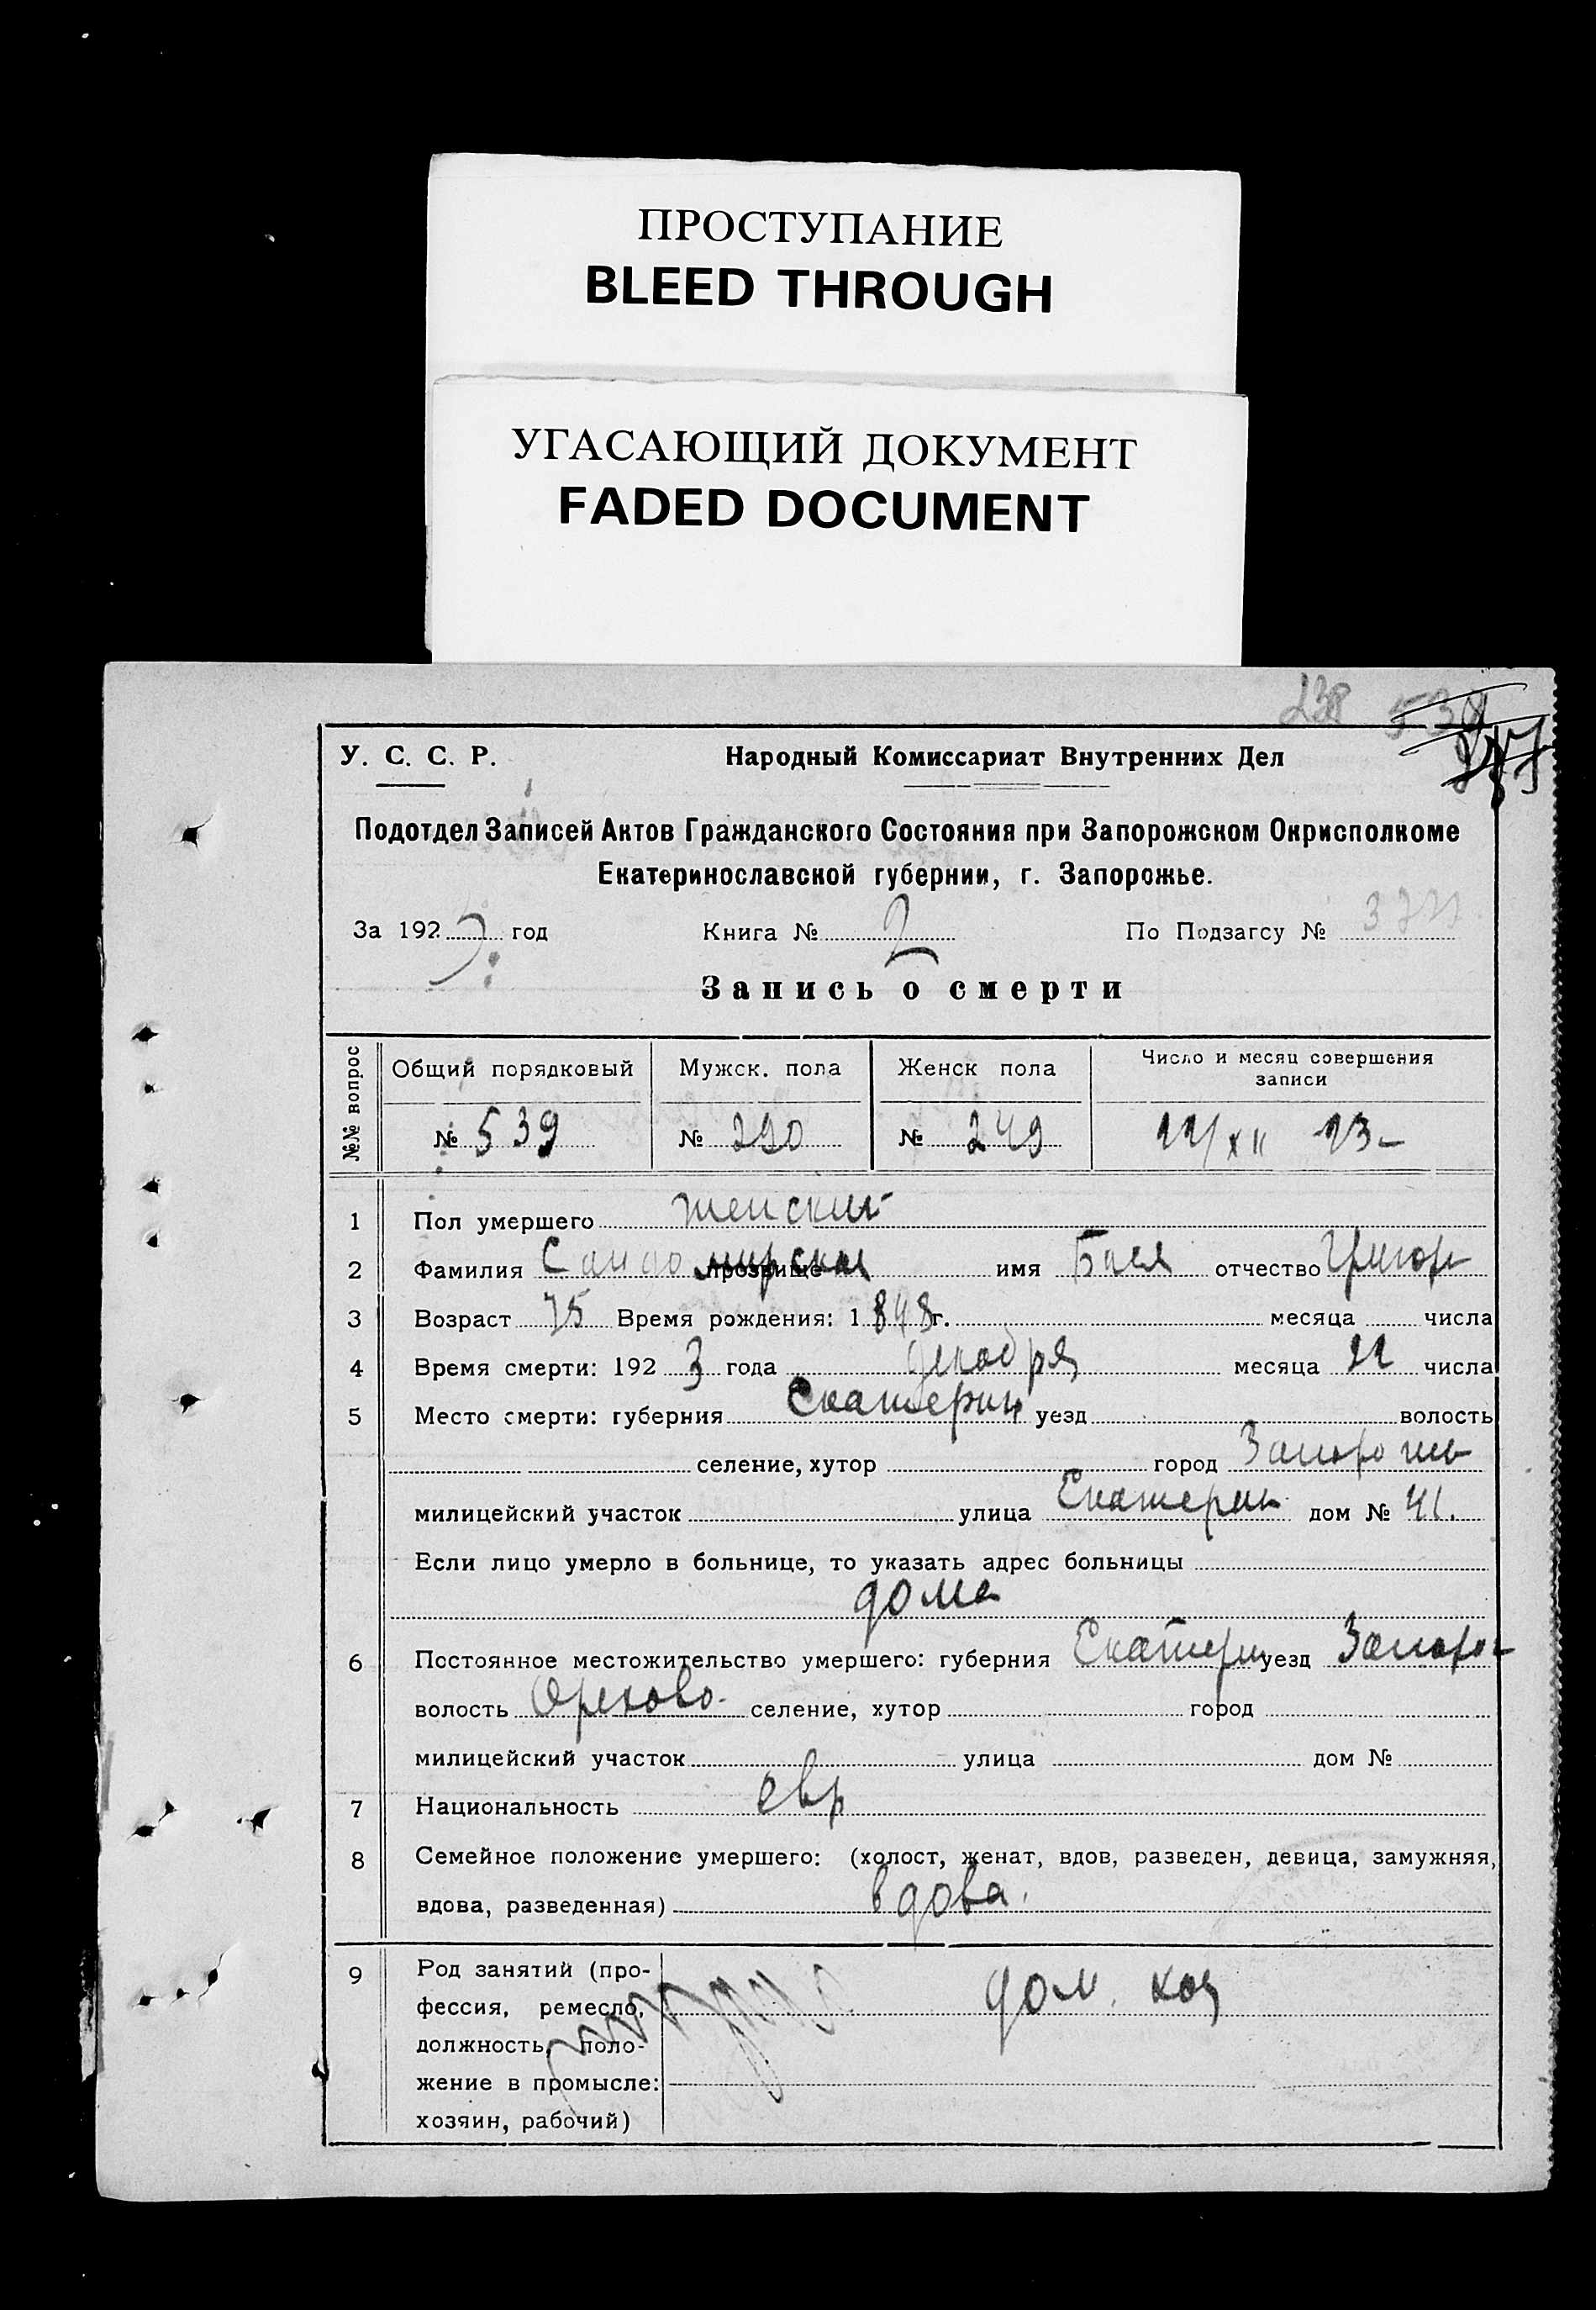 ПРОСТУПАНИЕ
BLEED THROUGH
УГАСАЮЩИЙ ДОКУМЕНТ
FADED DOCUMENT
238 538
У. С. С. Р. Народный Комиссариат Внутренних Дел
Подотдел Записей Актов Гражданского Состояния при Запорожском Окрисполкоме
Екатеринославской губернии, г. Запорожье.
За 1923 год Книга № 2 По Подзагсу №
Запись о смерти
№№ вопрос Общий порядковый Мужск. пола Женск пола Число и месяц совершения
записи
№ 539 № 290 № 249 22/XII 23
1 Пол умершего женский
2 Фамилия Сандомирская прозвище имя Бася отчество Григор
3 Возраст 75 Время рождения: 1848г. месяца числа
4 Время смерти: 1923 года декабря месяца 22 числа
5 Место смерти: губерния Екатерин уезд волость
селение, хутор город Запорожье
милицейский участок улица Екатерин дом № 41.
Если лицо умерло в больнице, то указать адрес больницы
дома
6 Постоянное местожительство умершего: губерния Екатерин уезд Запорож
волость Орехово селение, хутор город
милицейский участок улица дом №
7 Национальность евр
8 Семейное положение умершего: (холост, женат, вдов, разведен, девица, замужняя,
вдова, разведенная) вдова.
9 Род занятий (про-
фессия, ремесло, дом. хоз
должность, поло-
жение в промысле:
хозяин, рабочий)